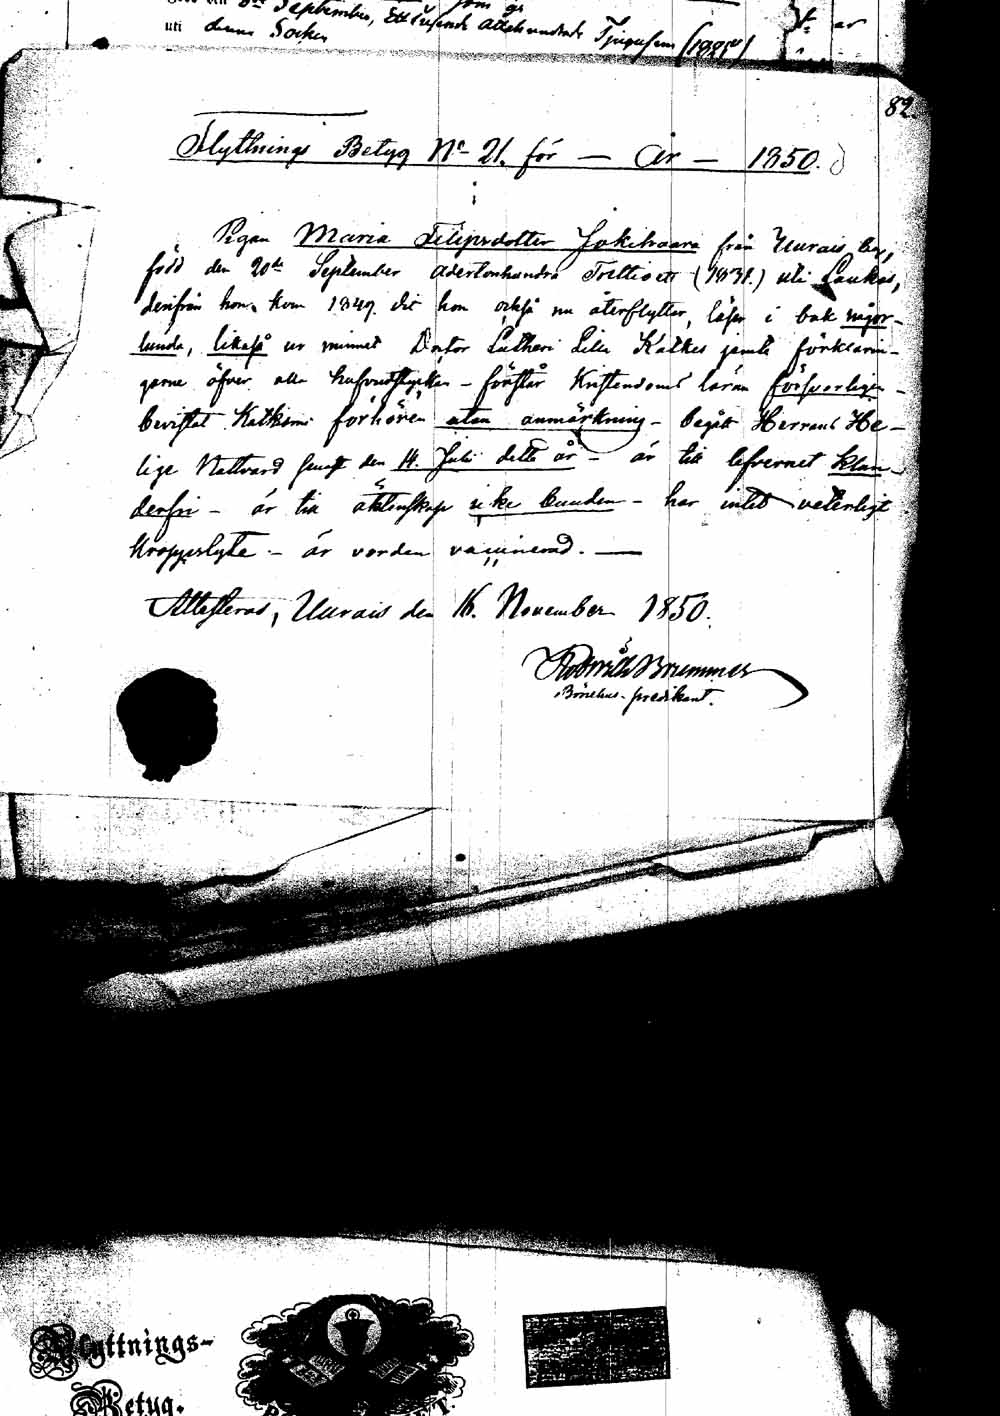 September, Ett tusende Attahundrade Tjugufem (1825)
uti denna Socken
82.
Flyttnings Betyg No 21. för — År — 1850.
Pigan Maria Filipsdotter Jokihaara från Uurais by,
född den 20de September Adertonhundra Trettioett (1831.) uti Laukas,
derifrån hon kom 1849. dit hon också nu återflyttar, läser i bok någor-
lunda, likaså ur minnet Doctor Lutheri Lilla Katkes jemte förklarin-
garne öfver alla hufvudstycken – förstår Kristendoms läran försvarligen –
bevistat Katkismi förhören utan anmärkning – begått Herrans He-
lige Nattvard senast den 14. Juli detta år – är till lefvernet klan-
derfri – är till äktenskap icke bunden – har intet veterligt
Kroppslyte – är vorden vaccinerad. —
Attesteras, Uurais den 16. November 1850.
Brummer
Bönehus-predikant.
Flyttnings-
Betyg.